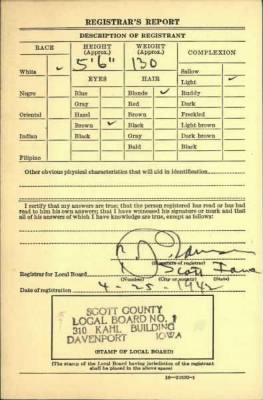 REGISTRAR'S REPORT
DESCRIPTION OF REGISTRANT
RACE HEIGHT (Approx.) WEIGHT (Approx.) COMPLEXION
White ✓ 5'6" 130 Sallow
EYES HAIR Light ✓
Negro Blue Blonde ✓ Ruddy
Gray Red Dark
Oriental Hazel Brown Freckled
Brown ✓ Black Light brown
Indian Black Gray Dark brown
Bald Black
Filipino
Other obvious physical characteristics that will aid in identification
I certify that my answers are true; that the person registered has read or has had
read to him his own answers; that I have witnessed his signature or mark and that
all of his answers of which I have knowledge are true, except as follows:
(Signature of registrar)
Registrar for Local Board 1 Scott Iowa
(Number) (City or county) (State)
Date of registration 4-25-1942
SCOTT COUNTY
LOCAL BOARD NO. 1
310 KAHL BUILDING
DAVENPORT IOWA
(STAMP OF LOCAL BOARD)
(The stamp of the Local Board having jurisdiction of the registrant
shall be placed in the above space)